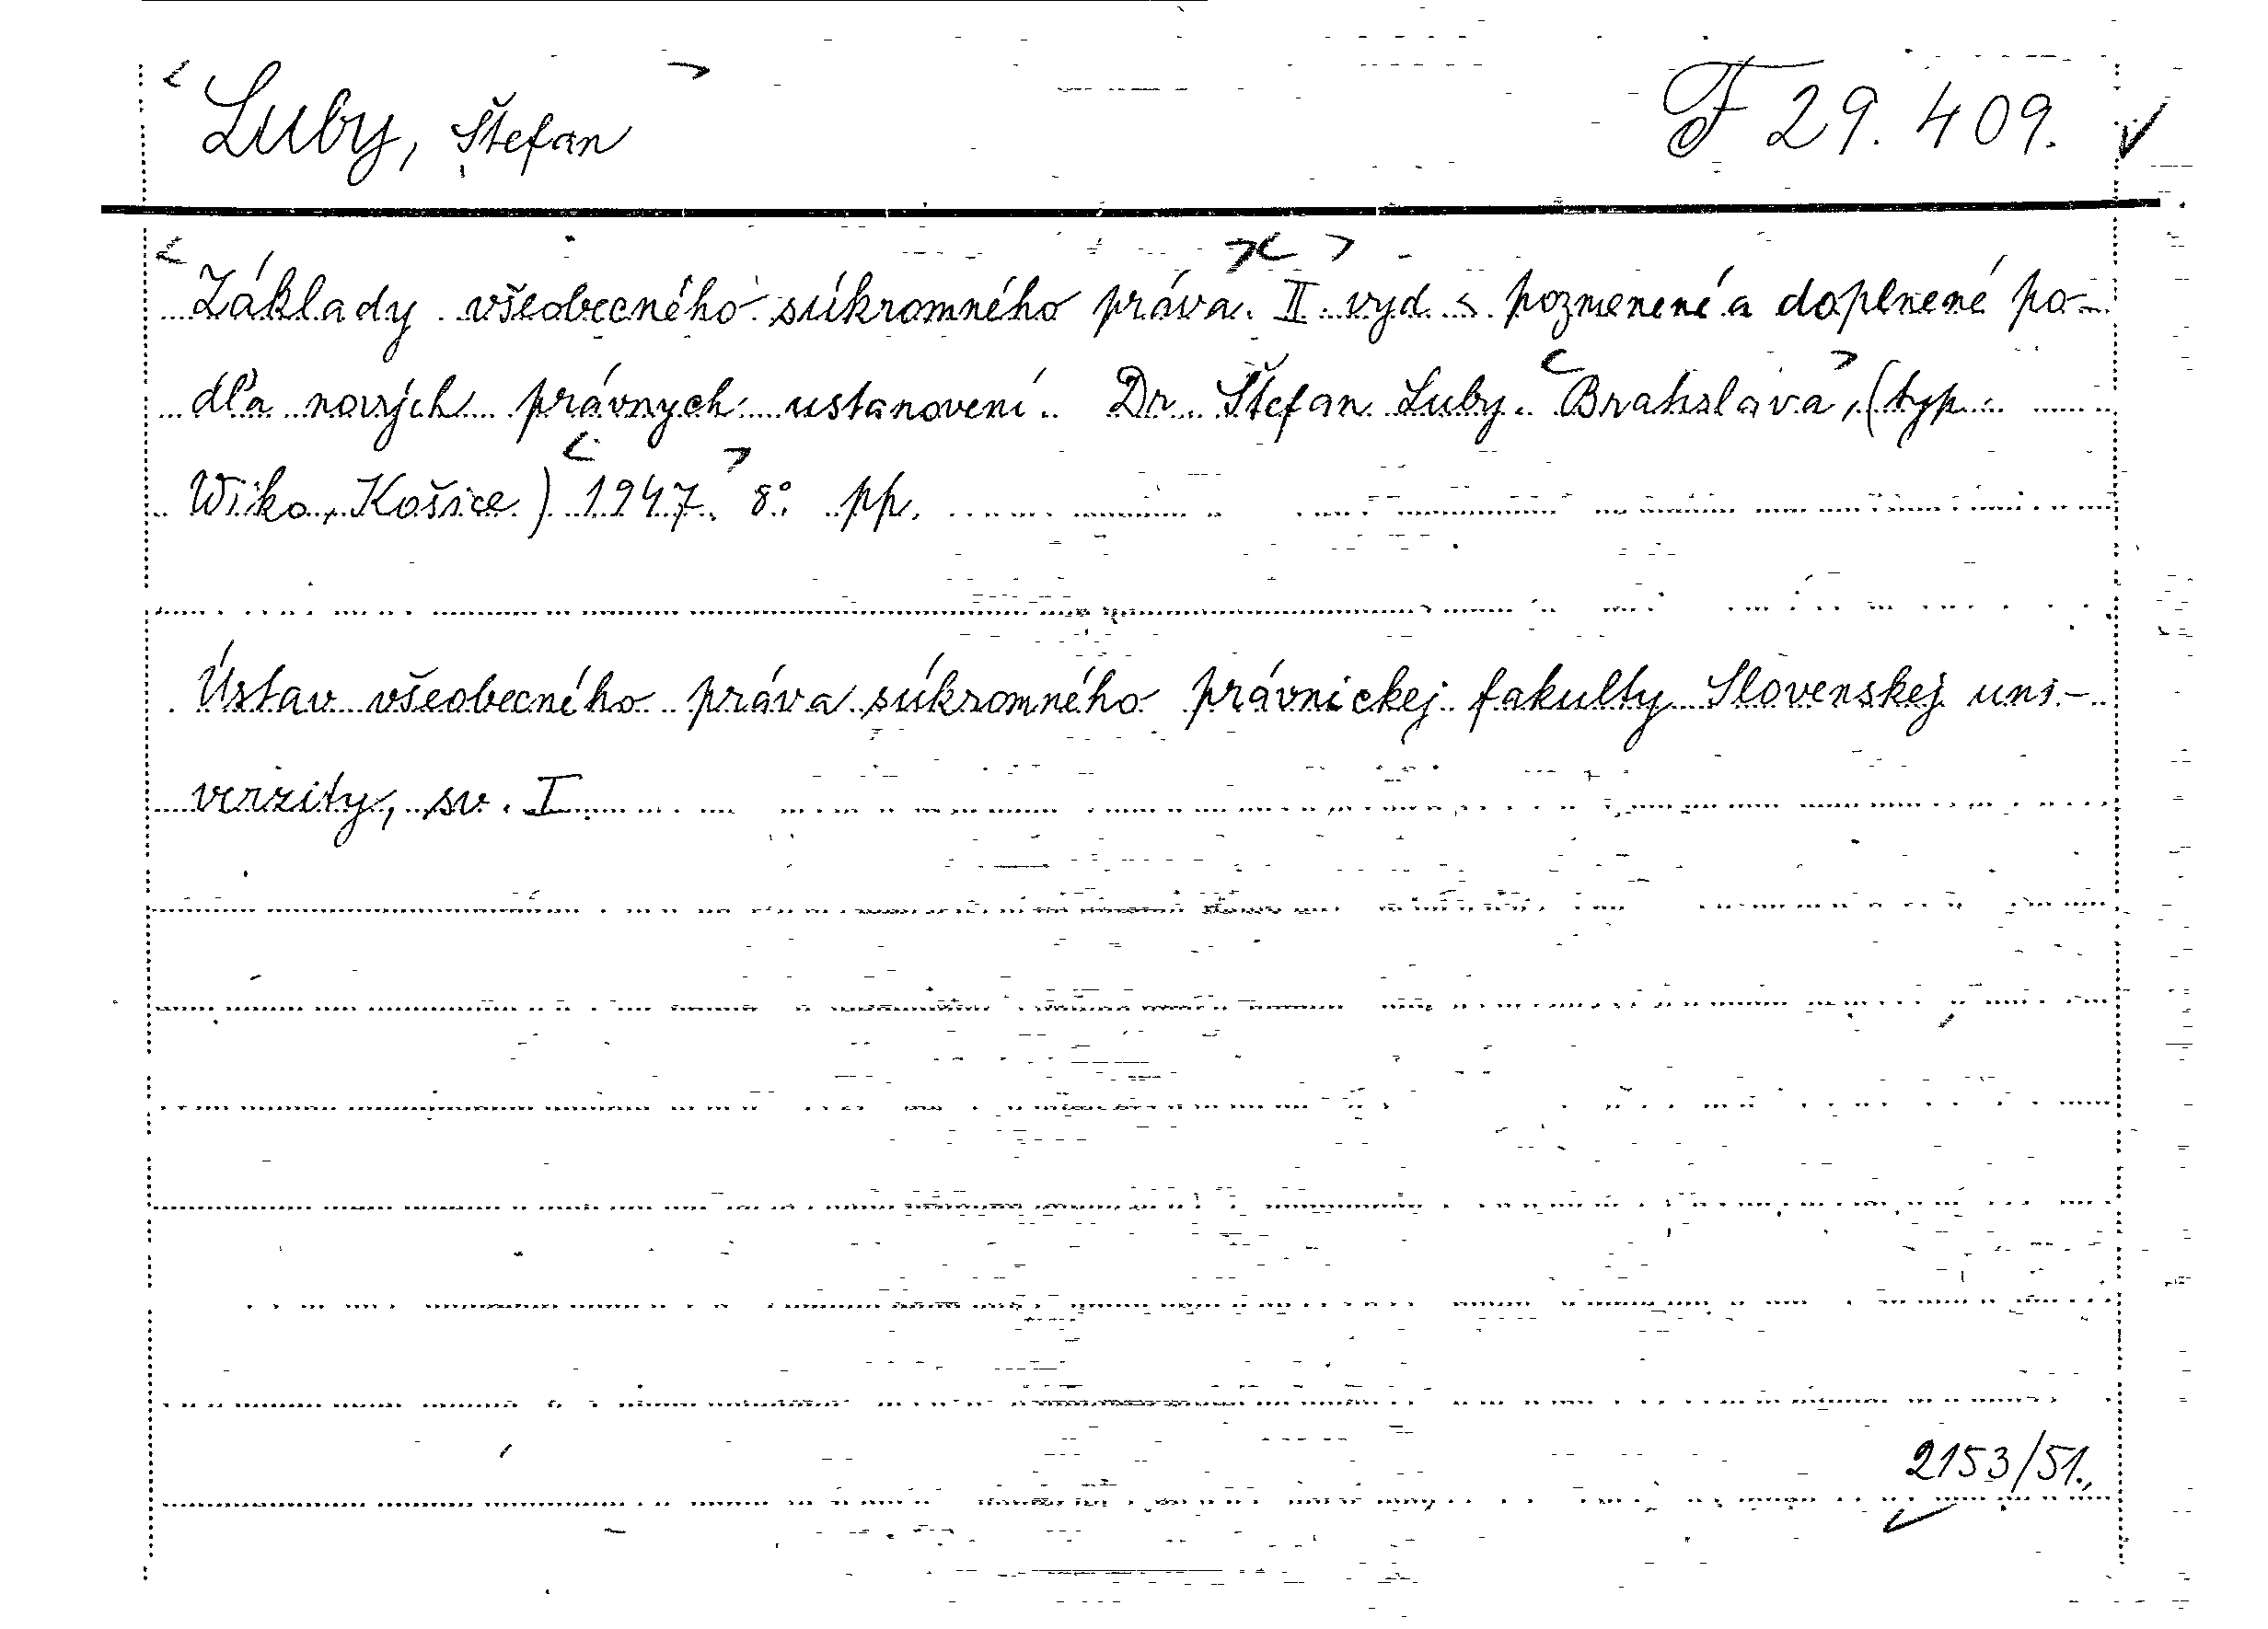 Luby, Štefan F 29.409.
Základy všeobecného súkromného práva. II. vyd. pozmenené a doplnené po-
dľa nových právnych ustanovení. Dr. Štefan Luby. Bratislava, (typ.
Wiko, Košice) 1947. 8° pp.
Ústav všeobecného práva súkromného právnickej fakulty Slovenskej uni-
verzity, sv. I.
2153/51.